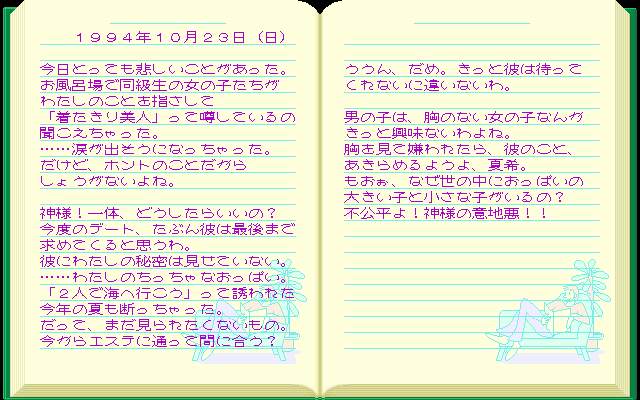 １９９４年１０月２３日（日）
今日とっても悲しいことがあった。
お風呂場で同級生の女の子たちが
わたしのことお指さして
「着たきり美人」って噂しているの
聞こえちゃった。
……涙が出そうになっちゃった。
だけど、ホントのことだから
しょうがないよね。
神様！一体、どうしたらいいの？
今度のデート、たぶん彼は最後まで
求めてくると思うわ。
彼にわたしの秘密は見せていない。
……わたしのちっちゃなおっぱい。
「２人で海へ行こう」って誘われた
今年の夏も断っちゃった。
だって、まだ見られたくないもの。
今からエステに通って間に合う？
ううん、だめ。きっと彼は待って
くれないに違いないわ。
男の子は、胸のない女の子なんか
きっと興味ないわよね。
胸お見て嫌われたら、彼のこと、
あきらめるようよ、夏希。
もおぉ、なぜ世の中におっぱいの
大きい子と小さな子がいるの？
不公平よ！神様の意地悪！！